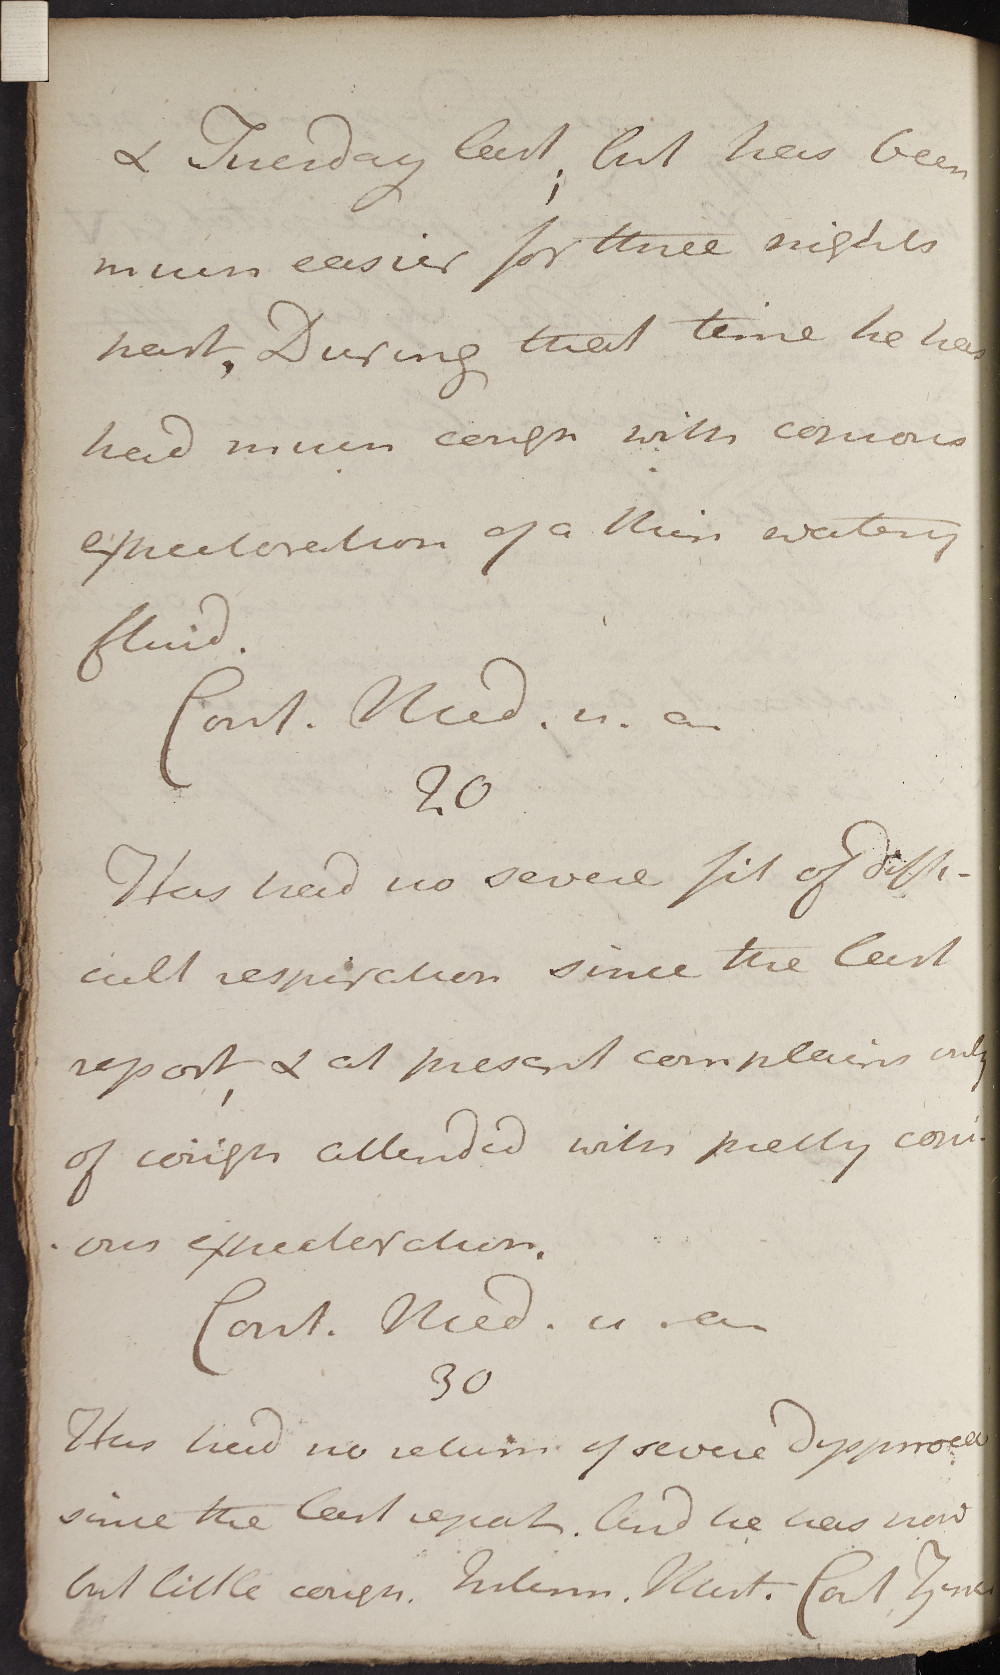 & Tuesday last, but has been
much easier for three nights
past, During that time he has
had much cough with copious
expectoration of a thin watery
fluid.
Cont. Med. u. a
20
Has had no severe fit of diffi-
cult respiration since the last
report, & at present complains only
of cough attended with pretty copi-
-ous expectoration.
Cont. Med. u. a
30
Has had no return of severe Dyspnoea
since the last report. And he has now
but little cough. Interm. Mist. Cont